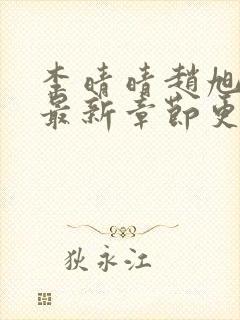 李晴晴趙旭
最新章節更
狄永江